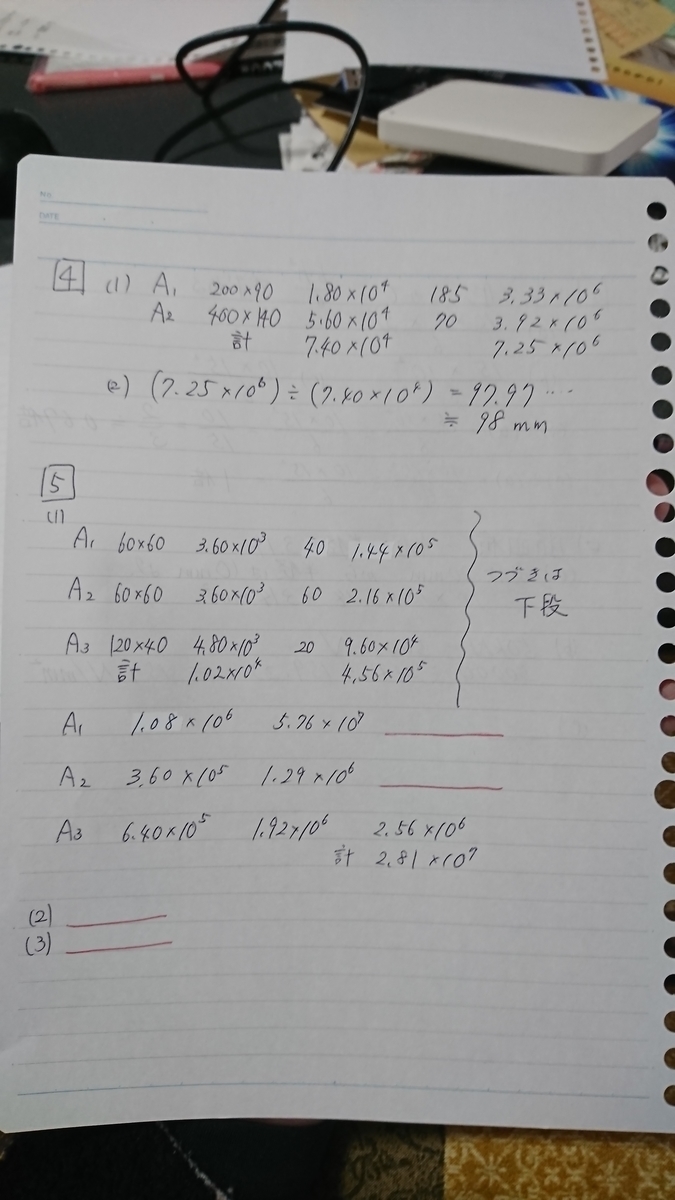 NO.
DATE
4 (1) A₁ 200×90 1.80×10⁴ 185 3.33×10⁶
A₂ 400×140 5.60×10⁴ 70 3.92×10⁶
計 7.40×10⁴ 7.25×10⁶
(2) (7.25×10⁶)÷(7.40×10⁴) = 97.97…
≒ 98 mm
5
(1)
A₁ 60×60 3.60×10³ 40 1.44×10⁵
つづきは
A₂ 60×60 3.60×10³ 60 2.16×10⁵
下段
A₃ 120×40 4.80×10³ 20 9.60×10⁴
計 1.02×10⁴ 4.56×10⁵
A₁ 1.08×10⁶ 5.76×10⁷
A₂ 3.60×10⁵ 1.29×10⁶
A₃ 6.40×10⁵ 1.92×10⁶ 2.56×10⁶
計 2.81×10⁷
(2)
(3)